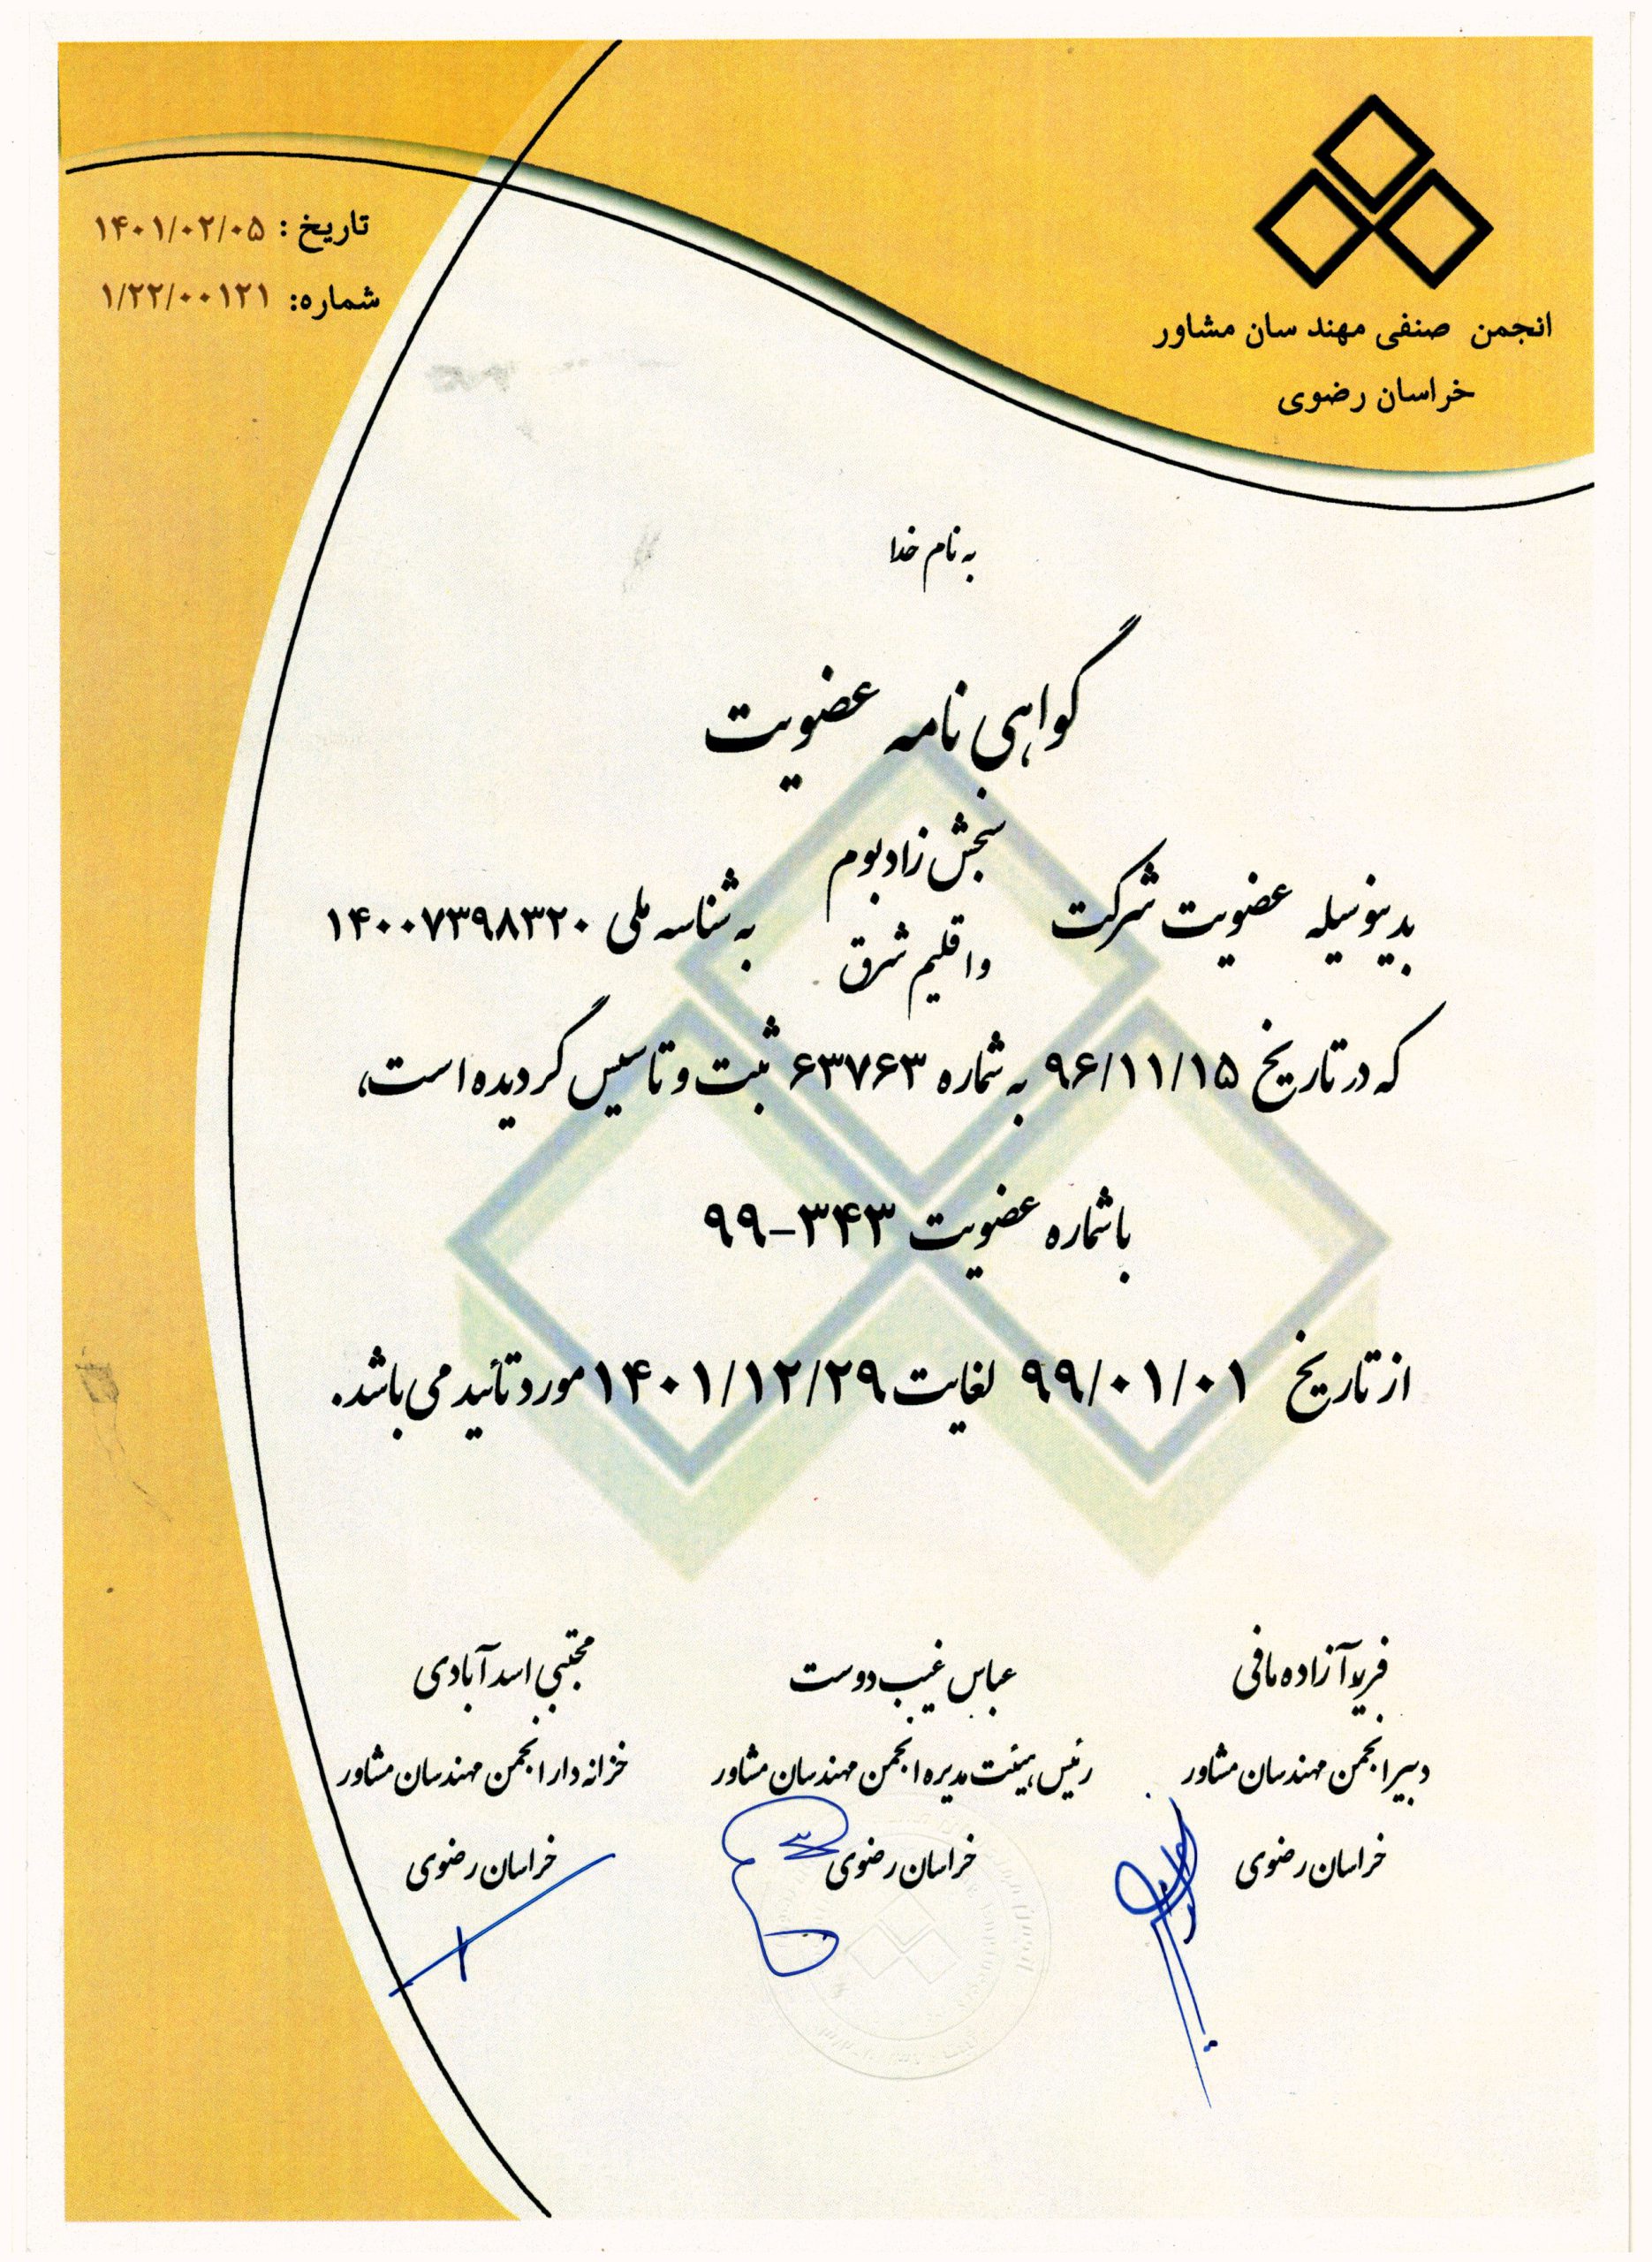 انجمن صنفی مهندسان مشاور
خراسان رضوی
تاریخ : ۱۴۰۱/۰۲/۰۵
شماره: ۱/۲۲/۰۰۱۲۱
به نام خدا
گواهی نامه عضویت
بدینوسیله عضویت شرکت سنجش زادبوم واقلیم شرق به شناسه ملی ۱۴۰۰۷۳۹۸۳۲۰
که در تاریخ ۹۶/۱۱/۱۵ به شماره ۶۳۷۶۳ ثبت و تاسیس گردیده است،
با شماره عضویت ۳۴۳-۹۹
از تاریخ ۹۹/۰۱/۰۱ لغایت ۱۴۰۱/۱۲/۲۹ مورد تأئید می باشد.
فریبا آزاده مافی
دبیر انجمن مهندسان مشاور
خراسان رضوی
عباس غیب دوست
رئیس هیئت مدیره انجمن مهندسان مشاور
خراسان رضوی
مجتبی اسدآبادی
خزانه دار انجمن مهندسان مشاور
خراسان رضوی